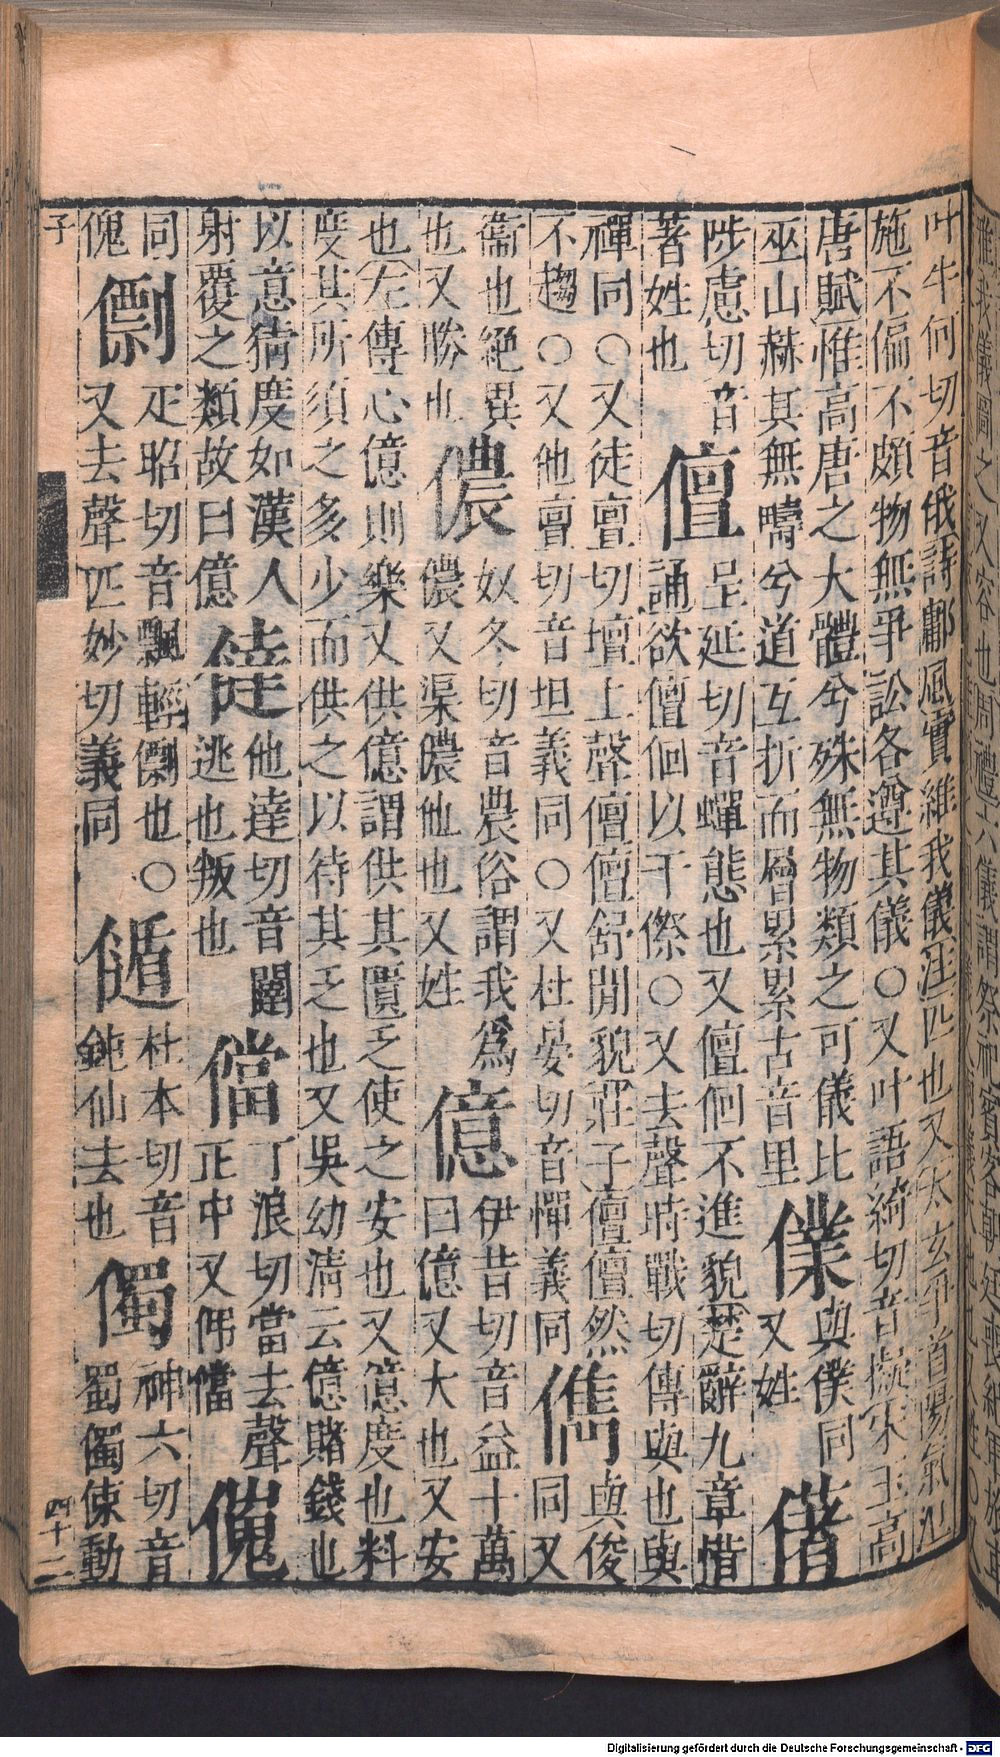 叶牛何切音俄詩鄘風實維我儀注匹也又太玄爭首陽氣氾
施不偏不頗物無爭訟各遵其儀○又叶語綺切音擬宋玉高
唐賦惟高唐之大體兮殊無物類之可儀比
巫山赫其無疇兮道互折而層累累古音里
㒒
與僕同
又姓
陟慮切音
著姓也
儃
呈延切音蟬態也又儃佪不進貌楚辭九章惜
誦欲儃佪以干傺○又去聲時戰切傳與也與
禪同○又徒亶切壇上聲儃儃舒閒貌莊子儃儃然
不趨○又他亶切音坦義同○又杜晏切音憚義同
儁
與俊
同又
衞也絕異
也又勝也
儂
奴冬切音農俗謂我為
儂又渠儂他也又姓
億
伊昔切音益十萬
曰億又大也又安
也左傳心億則樂又供億謂供其匱乏使之安也又億度也料
度其所須之多少而供之以待其乏也又吳幼清云億賭錢也
以意猜度如漢人
射覆之類故曰億
㒓
他達切音闥
逃也叛也
儅
丁浪切當去聲
正中又伄儅
同
傀
疋昭切音飄輕僄也○
又去聲匹妙切義同
杜本切音
鈍仙去也
㒔
神六切音
蜀㒔倲動
子
四十二
Digitalisierung gefördert durch die Deutsche Forschungsgemeinschaft - DFG